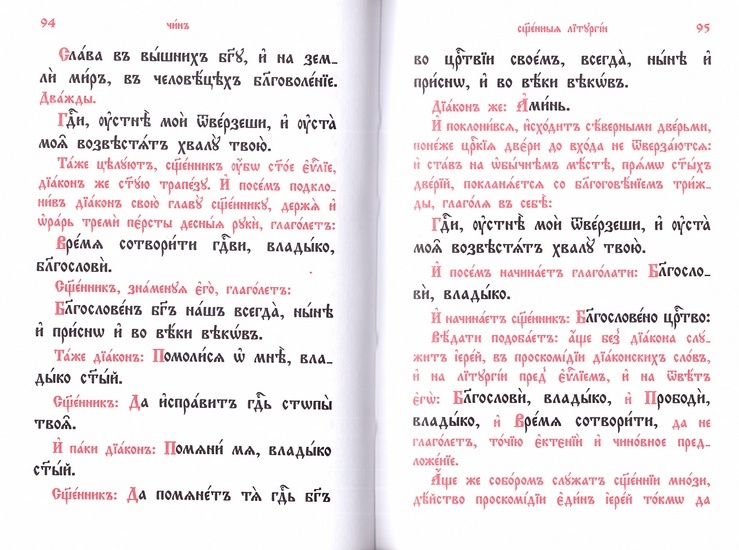 94 чи́нъ
Сла́ва въ вы́шнихъ бг҃у, и҆ на зем-
лѝ ми́ръ, въ человѣ́цѣхъ бл҃говоле́нїе.
Два́жды.
Гдⷭ҇и, ᲂу҆стнѣ̀ моѝ ѿве́рзеши, и҆ ᲂу҆ста̀
моѧ̑ возвѣстѧ́тъ хвалꙋ̀ твою̀.
Та́же цѣлꙋ́ютъ, сщ҃е́нникъ ᲂу҆́бѡ ст҃о́е є҆ѵⷢ҇лїе,
дїа́конъ же ст҃ꙋ́ю трапе́зꙋ. И҆ посе́мъ подкло-
ни́въ дїа́конъ свою̀ главꙋ̀ сщ҃е́нникꙋ, держѧ̀ и҆
ѡ҆ра́рь тремѝ пе́рсты десны́ѧ рꙋкѝ, глаго́летъ:
Вре́мѧ сотвори́ти гдⷭ҇ви, влады́ко,
бл҃гословѝ.
Сщ҃е́нникъ, зна́менꙋѧ є҆го̀, глаго́летъ:
Бл҃гослове́нъ бг҃ъ на́шъ всегда̀, ны́нѣ
и҆ при́снѡ и҆ во вѣ́ки вѣкѡ́въ.
Та́же дїа́конъ: Помоли́сѧ ѡ҆ мнѣ̀, вла-
ды́ко ст҃ы́й.
Сщ҃е́нникъ: Да и҆спра́витъ гдⷭ҇ь стѡпы̀
твоѧ̑.
И҆ па́ки дїа́конъ: Помѧнѝ мѧ̀, влады́ко
ст҃ы́й.
Сщ҃е́нникъ: Да помѧне́тъ тѧ̀ гдⷭ҇ь бг҃ъ
сщ҃е́нныѧ лїтꙋргі́и 95
во црⷭ҇твїи свое́мъ, всегда̀, ны́нѣ и҆
при́снѡ, и҆ во вѣ́ки вѣкѡ́въ.
Дїа́конъ же: А҆ми́нь.
И҆ поклони́всѧ, и҆схо́дитъ сѣ́верными две́рьми,
поне́же црⷭ҇кїѧ две́ри до вхо́да не ѿверза́ютсѧ:
и҆ ста́въ на ѡ҆бы́чнѣмъ мѣ́стѣ, прѧ́мѡ ст҃ы́хъ
двере́й, покланѧ́етсѧ со бл҃гоговѣ́нїемъ три́ж-
ды, глаго́лѧ въ себѣ̀:
Гдⷭ҇и, ᲂу҆стнѣ̀ моѝ ѿве́рзеши, и҆ ᲂу҆ста̀
моѧ̑ возвѣстѧ́тъ хвалꙋ̀ твою̀.
И҆ посе́мъ начина́етъ глаго́лати: Бл҃госло-
вѝ, влады́ко.
И҆ начина́етъ сщ҃е́нникъ: Бл҃гослове́но црⷭ҇тво:
Вѣ́дати подоба́етъ: а҆́ще без̾ дїа́кона слꙋ́-
житъ і҆ере́й, въ проскомі́дїи дїа́конскихъ сло́въ,
и҆ на лїтꙋргі́и пред̾ є҆ѵⷢ҇лїемъ, и҆ на ѿвѣ́тъ
є҆гѡ̀: Бл҃гословѝ, влады́ко, и҆ Прободѝ,
влады́ко, и҆ Вре́мѧ сотвори́ти, да не
глаго́летъ, то́чїю є҆ктенїѝ и҆ чино́вное пред-
ложе́нїе.
А҆́ще же собо́ромъ слꙋ́жатъ сщ҃е́нницы мно́зи,
дѣ́йство проскомі́дїи є҆ди́нъ і҆ере́й то́кмѡ да